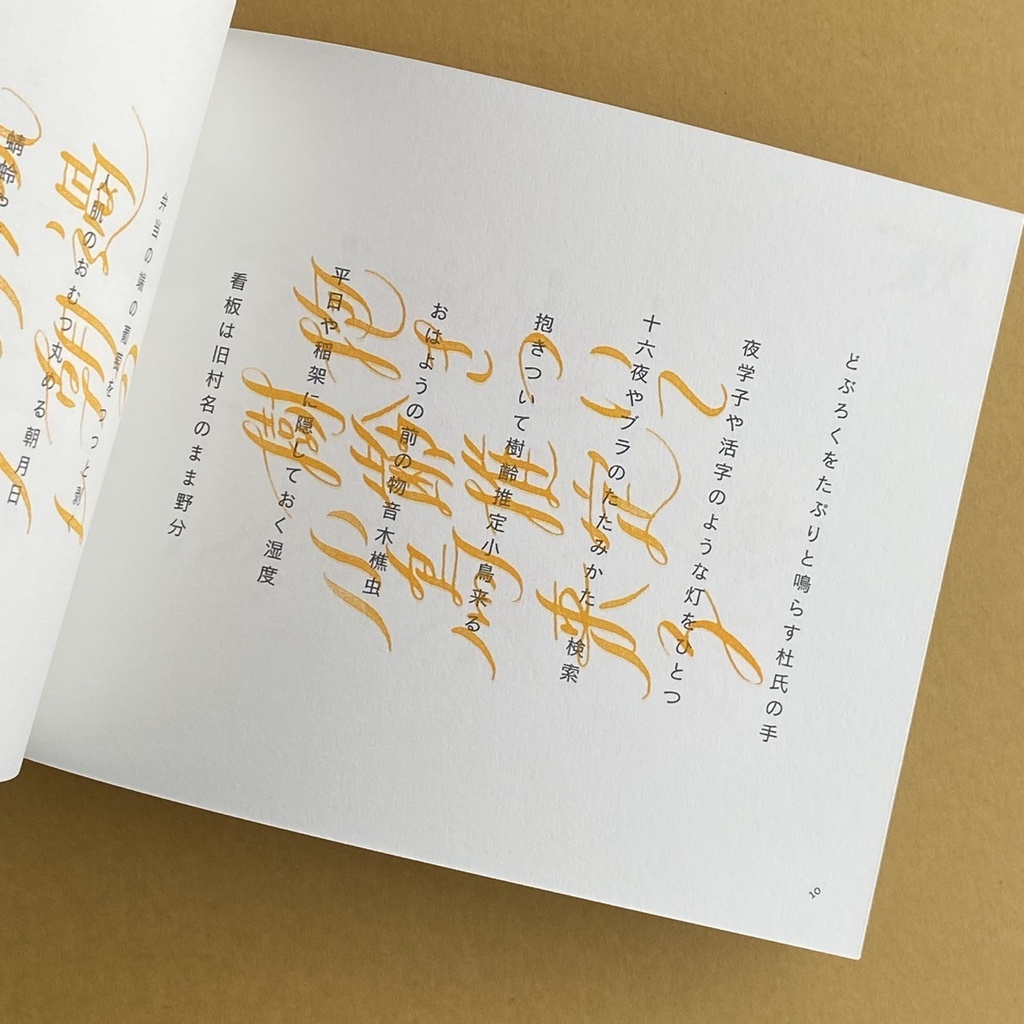 どぶろくをたぷりと鳴らす杜氏の手
夜学子や活字のような灯をひとつ
十六夜やブラのたたみかた 検索
抱きついて樹齢推定小鳥来る
おはようの前の物音木樵虫
平日や稲架に隠しておく湿度
看板は旧村名のまま野分
抱きついて
樹齢推定
小鳥来る
10
人肌のおむつ丸める朝月日
蜻蛉や